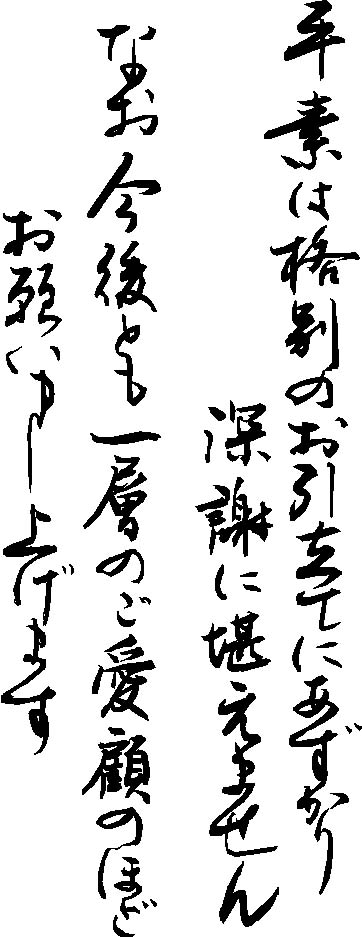 平素は格別のお引立てにあずかり
深謝に堪えません
なお今後とも一層のご愛顧のほど
お願い申し上げます